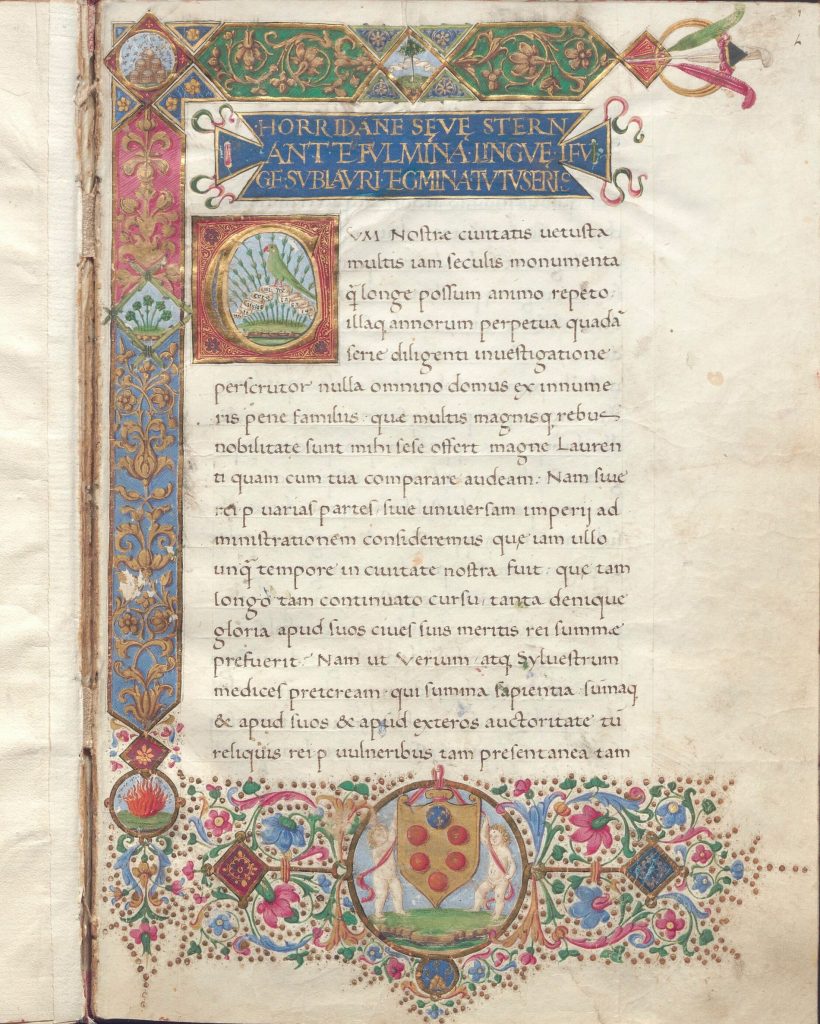 HORRIDANE SEVĘ STERN
ANTE FVLMINA LINGVĘ I FV
GE SVB LAVRI TEGMINA TVTVS ERIS
CVM Nostræ ciuitatis uetusta
multis iam seculis monumenta
q̃ longe possum animo repeto:
illaq annorum perpetua quadã
serie diligenti inuestigatione
perscrutor nulla omnino domus ex innume
ris pene familiis: quę multis magnisq rebus
nobilitate sunt mihi sese offert magne Lauren
ti quam cum tua comparare audeam: Nam siue
rei p uarias partes: siue uniuersam imperij ad
ministrationem consideremus quę iam ullo
unq̃ tempore in ciuitate nostra fuit: quę tam
longo tam continuato cursu: tanta denique
gloria apud suos ciues suis meritis rei summæ
prefuerit: Nam ut Verium: atq Syluestrum
medices pretereram: qui summa sapientia: sũmaq
& apud suos & apud exteros auctoritate tũ
reliquis rei p uulneribus tam presentanea tam